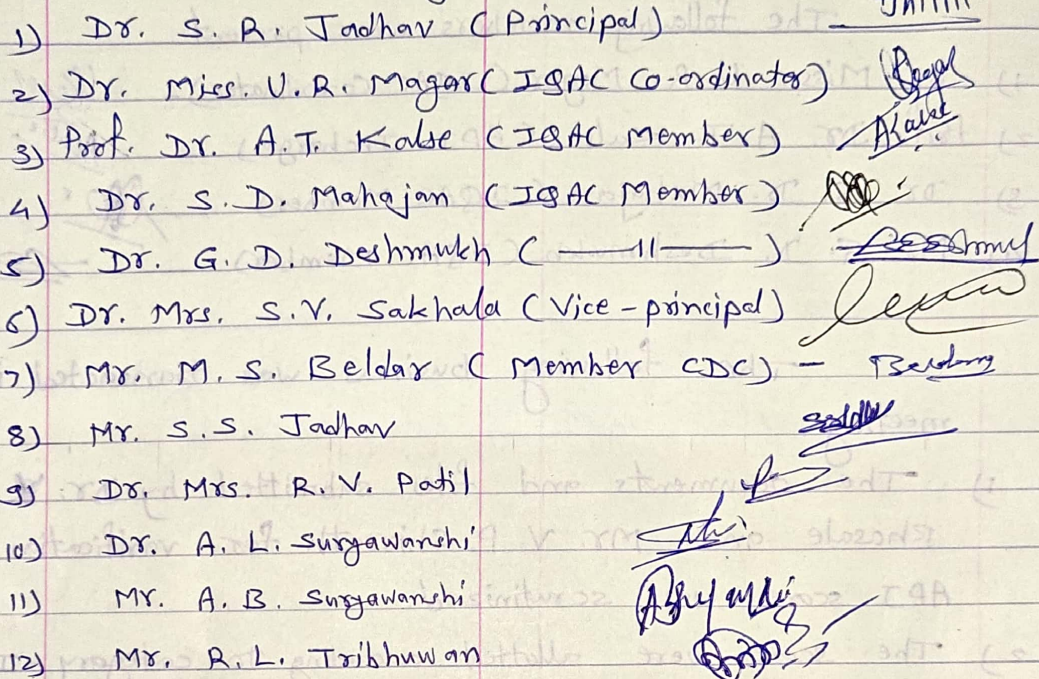 1) Dr. S. R. Jadhav (Principal)
2) Dr. Miss. U. R. Magar (IQAC Co-ordinator)
3) Prof. Dr. A. T. Kalse (IQAC Member)
4) Dr. S. D. Mahajan (IQAC Member)
5) Dr. G. D. Deshmukh ( —11— )
6) Dr. Mrs. S. V. Sakhala (Vice-principal)
7) Mr. M. S. Beldar ( Member CDC) -
8) Mr. S. S. Jadhav
9) Dr. Mrs. R. V. Patil
10) Dr. A. L. Suryawanshi
11) Mr. A. B. Suryawanshi
12) Mr. R. L. Tribhuwan